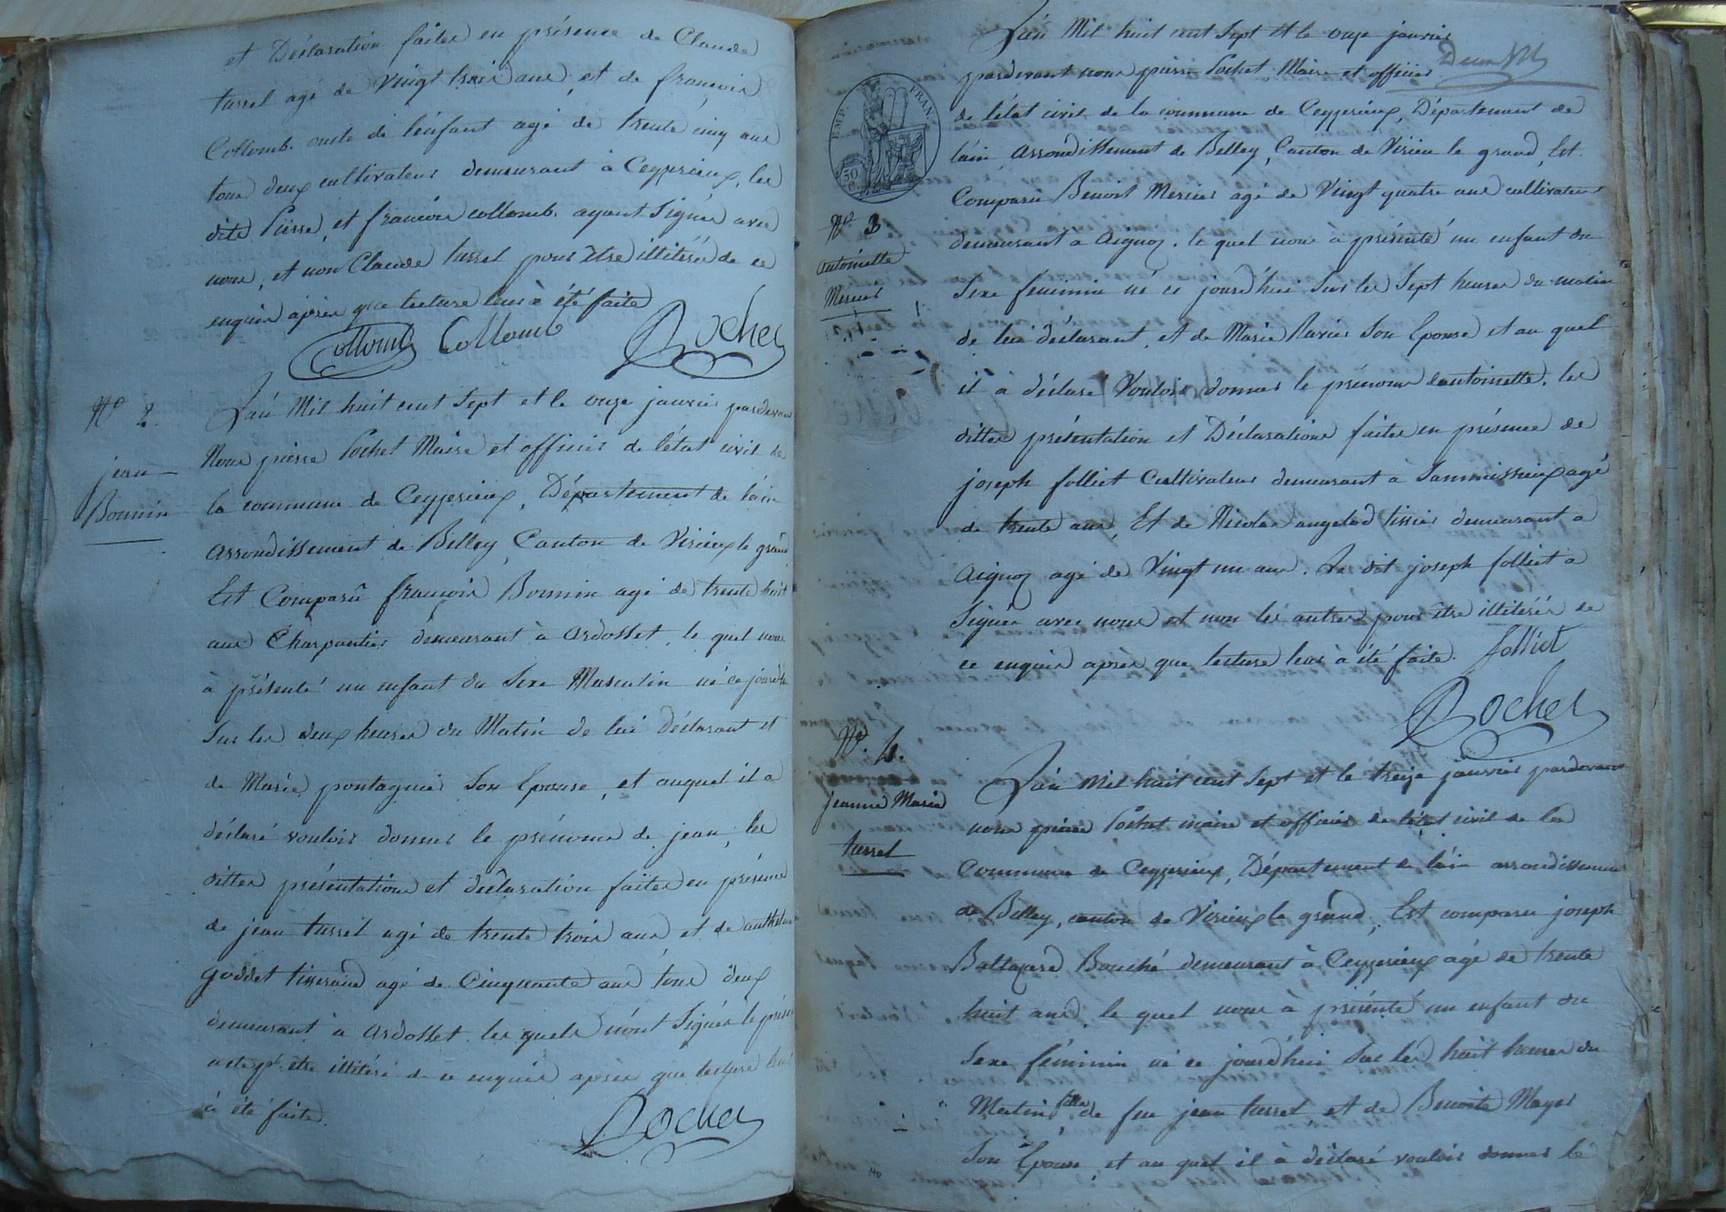 et Déclaration faites en présence de Claude
turrel agé de Vingt trois ans, et de françois
Collomb. oncle de l'enfant agé de trente cinq ans
tous deux cultivateurs demeurant à Ceyzerieux, les
dits Pierre, et françois collomb. ayant Signés avec
nous, et non Claude turrel pour être illitéré de ce
enquis après que lecture leur à été faite
Collomb Collomb Rochet
N.º 2.
jean
Bonnin
L'an Mil huit cent Sept et le onze janvier pardevant
Nous pierre Rochet Maire et officier de l'état civil de
la commune de Ceyzerieux, Département de l'ain
Arrondissement de Belley, Canton de Virieux le grand
Est Comparû françois Bonnin agé de trente huit
ans Charpentier demeurant à Ardosset, le quel nous
à présenté un enfant du Sexe Masculin né ce jourd'h
Sur les deux heures du Matin de lui déclarant et
de Marie pontagnier Son Epouse, et auquel il a
déclaré vouloir donner le prénoms de jean, les
dittes présentations et déclaration faites en présence
de jean turrel agé de trente trois ans et de anthelme
goddet tisserand agé de Cinquante ans tous deux
demeurant à Ardosset les quels n'ont Signés le présent
acte pr. être illitéré de ce enquis après que lecture leur
à été faite.
Rochet
L'an Mil huit cent Sept et le onze janvier
Deux
pardevant nous pierre Rochet Maire et officier
de l'état civil de la commune de Ceyzerieux, Département de
l'ain Arrondissement de Belley, Canton de Virieu le grand, Est
Comparu Benoit Mercier agé de Vingt quatre ans cultivateur
demeurant a Aignoz. le quel nous à présenté un enfant du
Sexe feminin né ce jourd'hui Sur les Sept heures du matin
de lui déclarant, et de Marie Ravier Son Epouse et au quel
il a déclaré Vouloir donner le prénoms d'antoinette. les
dittes présentation et Déclarations faites en présence de
joseph folliet Cultivateur demeurant à Sammissieux agé
de trente ans, Et de Nicolas angelod tissier demeurant a
Aignoz agé de Vingt un ans. Le dit joseph folliet a
Signé avec nous et non les autres pour être illitéré de
ce enquis après que lecture leur à été faite. folliet
Rochet
EMP. FRAN.
50
C.
N.º 3
Antoinette
Mercier
N.º 4.
jeanne Marie
turrel
L'an Mil huit cent Sept et le treize janvier pardevant
nous pierre Rochet maire et officier de l'état civil de la
Commune de Ceyzerieux, Département de l'ain arrondissement
de Belley, canton de Virieux le grand, Est comparu joseph
Baltazard Bouché demeurant à Ceyzerieux agé de trente
huit ans, le quel nous à présenté un enfant du
Sexe féminin né ce jourd'hui Sur les huit heures du
Matin fille de feu jean turrel et de Benoite Mayer
Son Epouse, et au quel il à déclaré vouloir donner le